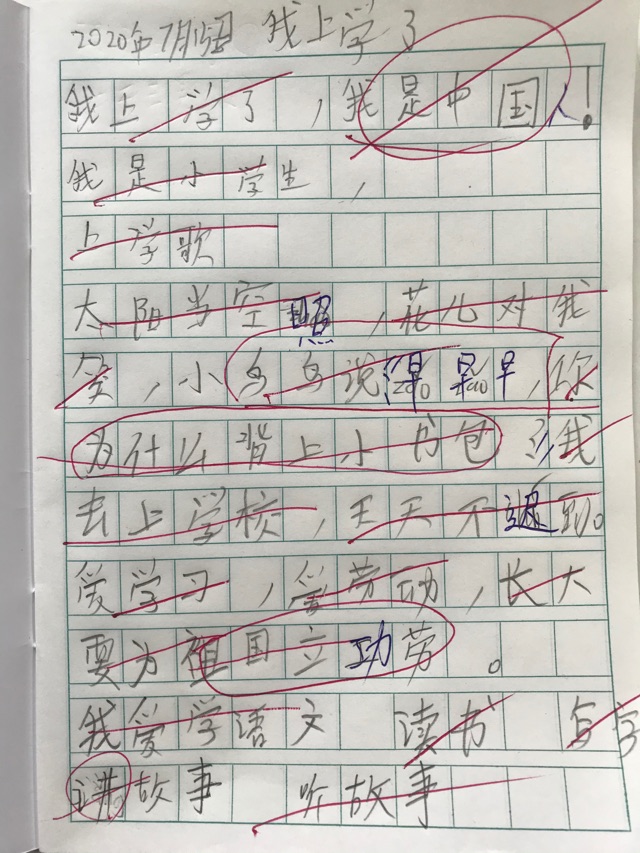 2020年7月15日 我上学了
我上学了,我是中国人!
我是小学生,
上学歌
太阳当空照,花儿对我
笑,小鸟鸟说早早早,你
为什么背上小书包?我
去上学校,天天不迟到。
爱学习,爱劳动,长大
要为祖国立功劳。
我爱学语文 读书 写字
讲故事 听故事